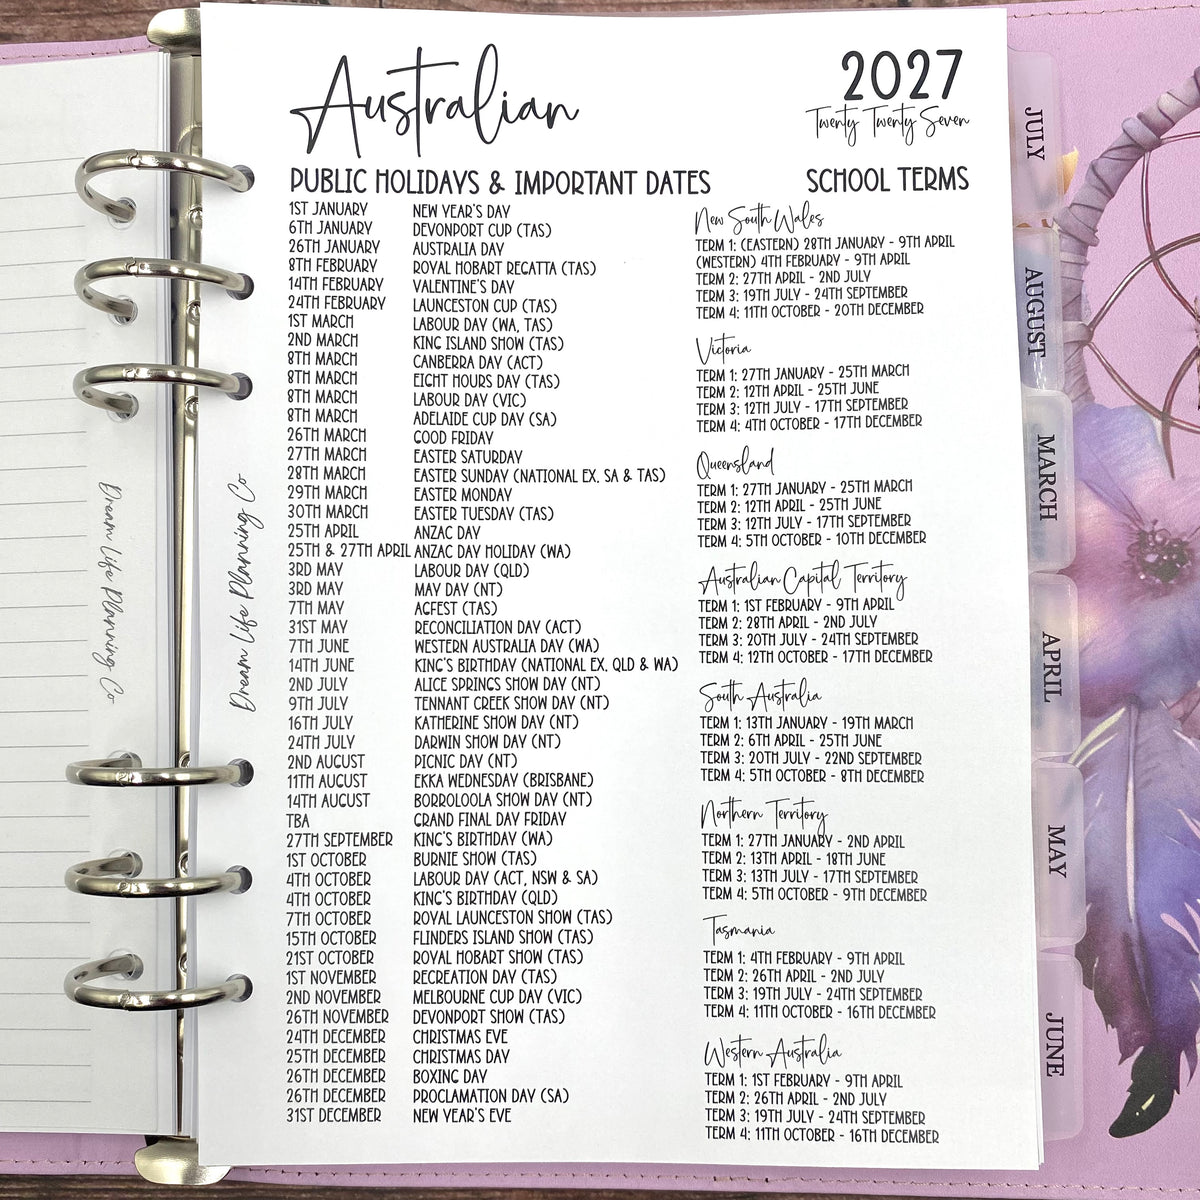 Australian
2027
Twenty Twenty Seven
PUBLIC HOLIDAYS & IMPORTANT DATES
1ST JANUARY NEW YEAR'S DAY
6TH JANUARY DEVONPORT CUP (TAS)
26TH JANUARY AUSTRALIA DAY
8TH FEBRUARY ROYAL HOBART REGATTA (TAS)
14TH FEBRUARY VALENTINE'S DAY
24TH FEBRUARY LAUNCESTON CUP (TAS)
1ST MARCH LABOUR DAY (WA, TAS)
2ND MARCH KING ISLAND SHOW (TAS)
8TH MARCH CANBERRA DAY (ACT)
8TH MARCH EIGHT HOURS DAY (TAS)
8TH MARCH LABOUR DAY (VIC)
8TH MARCH ADELAIDE CUP DAY (SA)
26TH MARCH GOOD FRIDAY
27TH MARCH EASTER SATURDAY
28TH MARCH EASTER SUNDAY (NATIONAL EX. SA & TAS)
29TH MARCH EASTER MONDAY
30TH MARCH EASTER TUESDAY (TAS)
25TH APRIL ANZAC DAY
25TH & 27TH APRIL ANZAC DAY HOLIDAY (WA)
3RD MAY LABOUR DAY (QLD)
3RD MAY MAY DAY (NT)
7TH MAY AGFEST (TAS)
31ST MAY RECONCILIATION DAY (ACT)
7TH JUNE WESTERN AUSTRALIA DAY (WA)
14TH JUNE KING'S BIRTHDAY (NATIONAL EX. QLD & WA)
2ND JULY ALICE SPRINGS SHOW DAY (NT)
9TH JULY TENNANT CREEK SHOW DAY (NT)
16TH JULY KATHERINE SHOW DAY (NT)
24TH JULY DARWIN SHOW DAY (NT)
2ND AUGUST PICNIC DAY (NT)
11TH AUGUST EKKA WEDNESDAY (BRISBANE)
14TH AUGUST BORROLOOLA SHOW DAY (NT)
TBA GRAND FINAL DAY FRIDAY
27TH SEPTEMBER KING'S BIRTHDAY (WA)
1ST OCTOBER BURNIE SHOW (TAS)
4TH OCTOBER LABOUR DAY (ACT, NSW & SA)
4TH OCTOBER KING'S BIRTHDAY (QLD)
7TH OCTOBER ROYAL LAUNCESTON SHOW (TAS)
15TH OCTOBER FLINDERS ISLAND SHOW (TAS)
21ST OCTOBER ROYAL HOBART SHOW (TAS)
1ST NOVEMBER RECREATION DAY (TAS)
2ND NOVEMBER MELBOURNE CUP DAY (VIC)
26TH NOVEMBER DEVONPORT SHOW (TAS)
24TH DECEMBER CHRISTMAS EVE
25TH DECEMBER CHRISTMAS DAY
26TH DECEMBER BOXING DAY
26TH DECEMBER PROCLAMATION DAY (SA)
31ST DECEMBER NEW YEAR'S EVE
SCHOOL TERMS
New South Wales
TERM 1: (EASTERN) 28TH JANUARY - 9TH APRIL
(WESTERN) 4TH FEBRUARY - 9TH APRIL
TERM 2: 27TH APRIL - 2ND JULY
TERM 3: 19TH JULY - 24TH SEPTEMBER
TERM 4: 11TH OCTOBER - 20TH DECEMBER
Victoria
TERM 1: 27TH JANUARY - 25TH MARCH
TERM 2: 12TH APRIL - 25TH JUNE
TERM 3: 12TH JULY - 17TH SEPTEMBER
TERM 4: 4TH OCTOBER - 17TH DECEMBER
Queensland
TERM 1: 27TH JANUARY - 25TH MARCH
TERM 2: 12TH APRIL - 25TH JUNE
TERM 3: 12TH JULY - 17TH SEPTEMBER
TERM 4: 5TH OCTOBER - 10TH DECEMBER
Australian Capital Territory
TERM 1: 1ST FEBRUARY - 9TH APRIL
TERM 2: 28TH APRIL - 2ND JULY
TERM 3: 20TH JULY - 24TH SEPTEMBER
TERM 4: 12TH OCTOBER - 17TH DECEMBER
South Australia
TERM 1: 13TH JANUARY - 19TH MARCH
TERM 2: 6TH APRIL - 25TH JUNE
TERM 3: 20TH JULY - 22ND SEPTEMBER
TERM 4: 5TH OCTOBER - 8TH DECEMBER
Northern Territory
TERM 1: 27TH JANUARY - 2ND APRIL
TERM 2: 13TH APRIL - 18TH JUNE
TERM 3: 13TH JULY - 17TH SEPTEMBER
TERM 4: 5TH OCTOBER - 9TH DECEMBER
Tasmania
TERM 1: 4TH FEBRUARY - 9TH APRIL
TERM 2: 26TH APRIL - 2ND JULY
TERM 3: 19TH JULY - 24TH SEPTEMBER
TERM 4: 11TH OCTOBER - 16TH DECEMBER
Western Australia
TERM 1: 1ST FEBRUARY - 9TH APRIL
TERM 2: 26TH APRIL - 2ND JULY
TERM 3: 19TH JULY - 24TH SEPTEMBER
TERM 4: 11TH OCTOBER - 16TH DECEMBER
Dream Life Planning Co
Dream Life Planning Co
JULY
AUGUST
MARCH
APRIL
MAY
JUNE